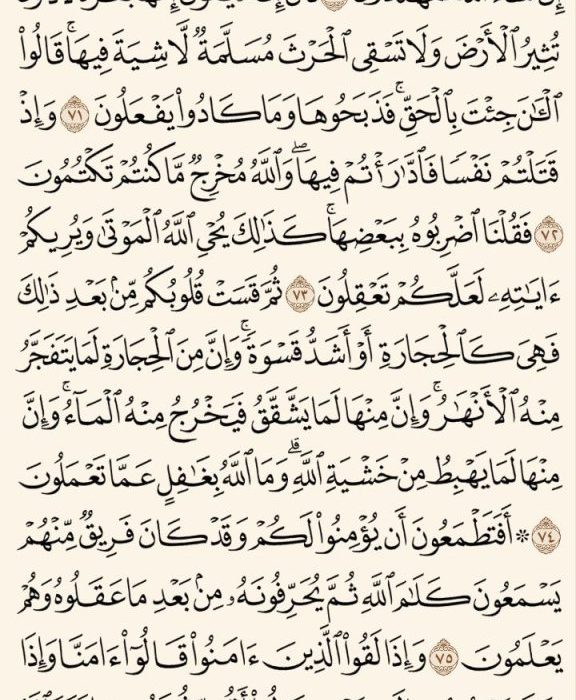 تُثِيرُ ٱلْأَرْضَ وَلَا تَسْقِى ٱلْحَرْثَ مُسَلَّمَةٌ لَّا شِيَةَ فِيهَاۚ قَالُوا۟
ٱلْـَٰٔنَ جِئْتَ بِٱلْحَقِّۚ فَذَبَحُوهَا وَمَا كَادُوا۟ يَفْعَلُونَ ٧١ وَإِذْ
قَتَلْتُمْ نَفْسًا فَٱدَّٰرَْٰٔتُمْ فِيهَاۖ وَٱللَّهُ مُخْرِجٌ مَّا كُنتُمْ تَكْتُمُونَ
٧٢ فَقُلْنَا ٱضْرِبُوهُ بِبَعْضِهَاۚ كَذَٰلِكَ يُحْىِ ٱللَّهُ ٱلْمَوْتَىٰ وَيُرِيكُمْ
ءَايَٰتِهِۦ لَعَلَّكُمْ تَعْقِلُونَ ٧٣ ثُمَّ قَسَتْ قُلُوبُكُم مِّنۢ بَعْدِ ذَٰلِكَ
فَهِىَ كَٱلْحِجَارَةِ أَوْ أَشَدُّ قَسْوَةًۚ وَإِنَّ مِنَ ٱلْحِجَارَةِ لَمَا يَتَفَجَّرُ
مِنْهُ ٱلْأَنْهَٰرُۚ وَإِنَّ مِنْهَا لَمَا يَشَّقَّقُ فَيَخْرُجُ مِنْهُ ٱلْمَآءُۚ وَإِنَّ
مِنْهَا لَمَا يَهْبِطُ مِنْ خَشْيَةِ ٱللَّهِۗ وَمَا ٱللَّهُ بِغَٰفِلٍ عَمَّا تَعْمَلُونَ
٧٤ * أَفَتَطْمَعُونَ أَن يُؤْمِنُوا۟ لَكُمْ وَقَدْ كَانَ فَرِيقٌ مِّنْهُمْ
يَسْمَعُونَ كَلَٰمَ ٱللَّهِ ثُمَّ يُحَرِّفُونَهُۥ مِنۢ بَعْدِ مَا عَقَلُوهُ وَهُمْ
يَعْلَمُونَ ٧٥ وَإِذَا لَقُوا۟ ٱلَّذِينَ ءَامَنُوا۟ قَالُوٓا۟ ءَامَنَّا وَإِذَا